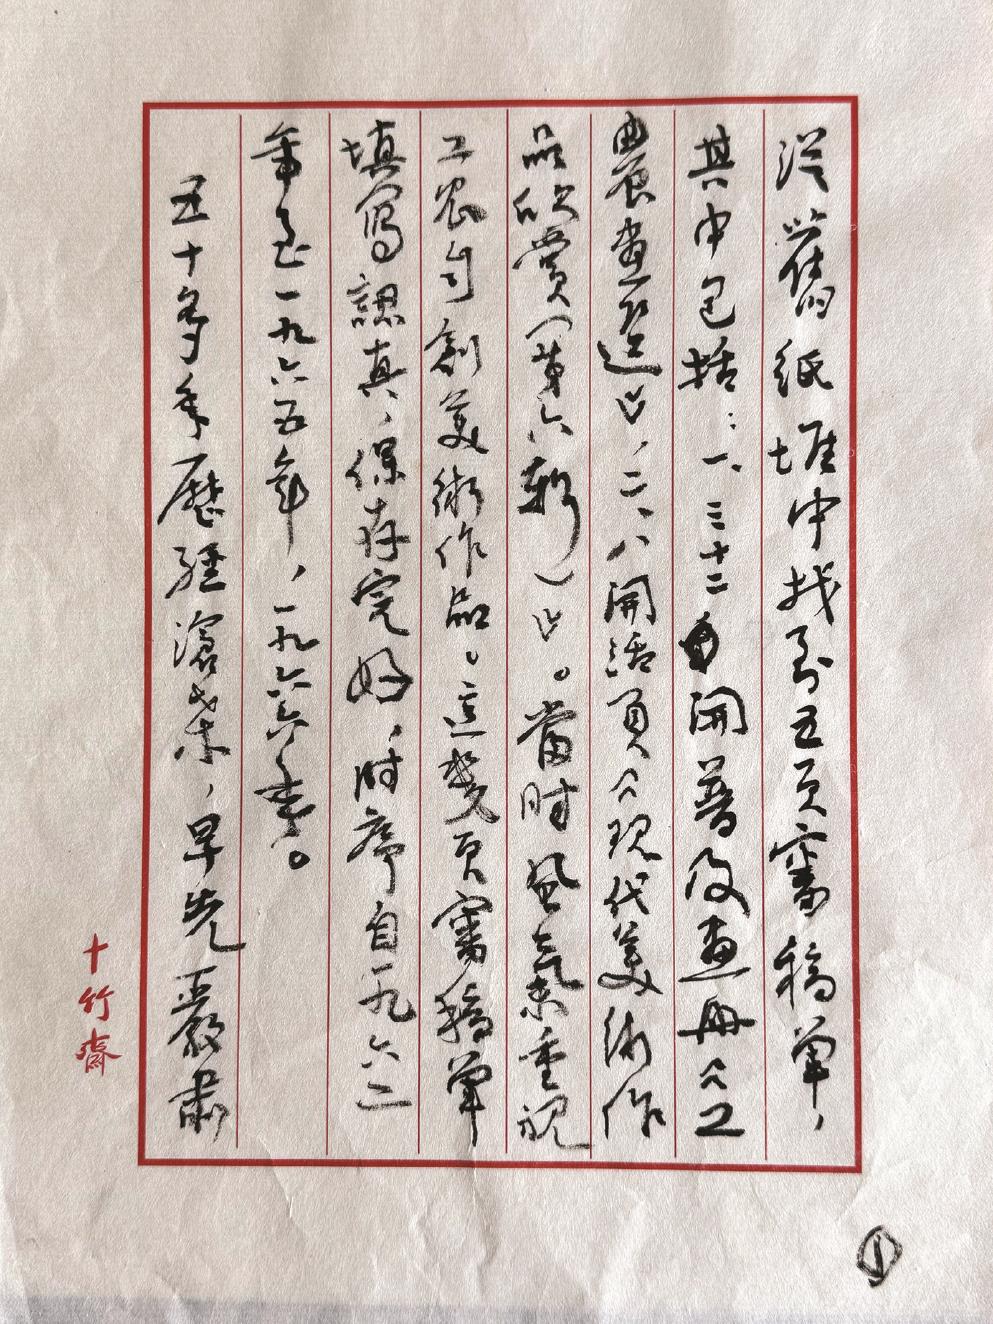 從舊紙堆中找到五页審稿單，
其中包括：一、三十二開普及画册《工
農畫选》，二、八開活页《現代美術作
品欣赏（第六輯）》。當时風氣重視
工农自創美術作品。這幾页審稿單
填寫認真，保存完好，时序自一九六二
年至一九六五年，一九六六年。
五十多年歷經滄桑，早先嚴肅
十竹齋
①